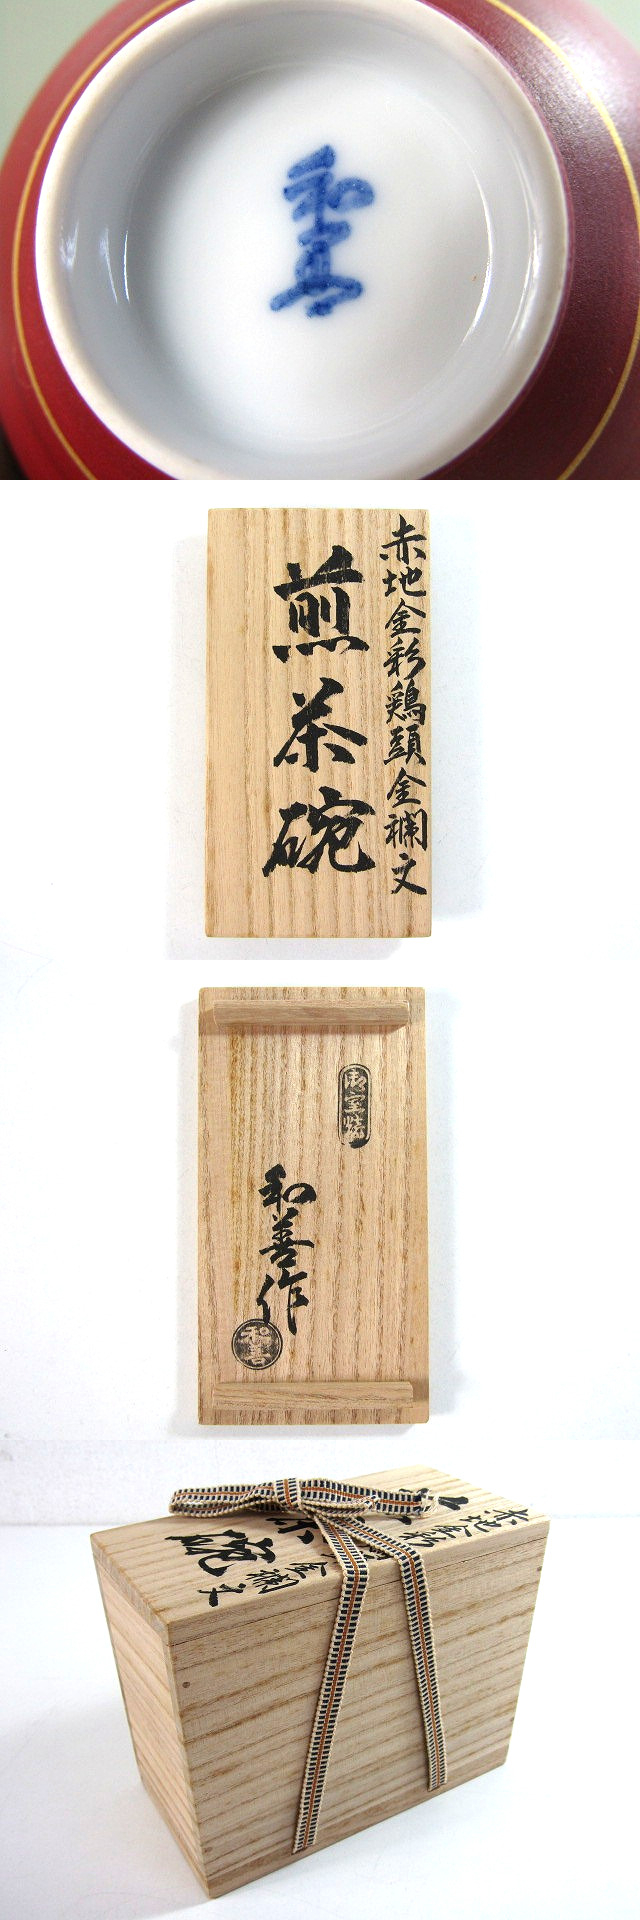 和善
赤地金彩鶏頭金襴文
煎茶碗
御室焼
和善作
和善
赤地金彩
金襴文
碗